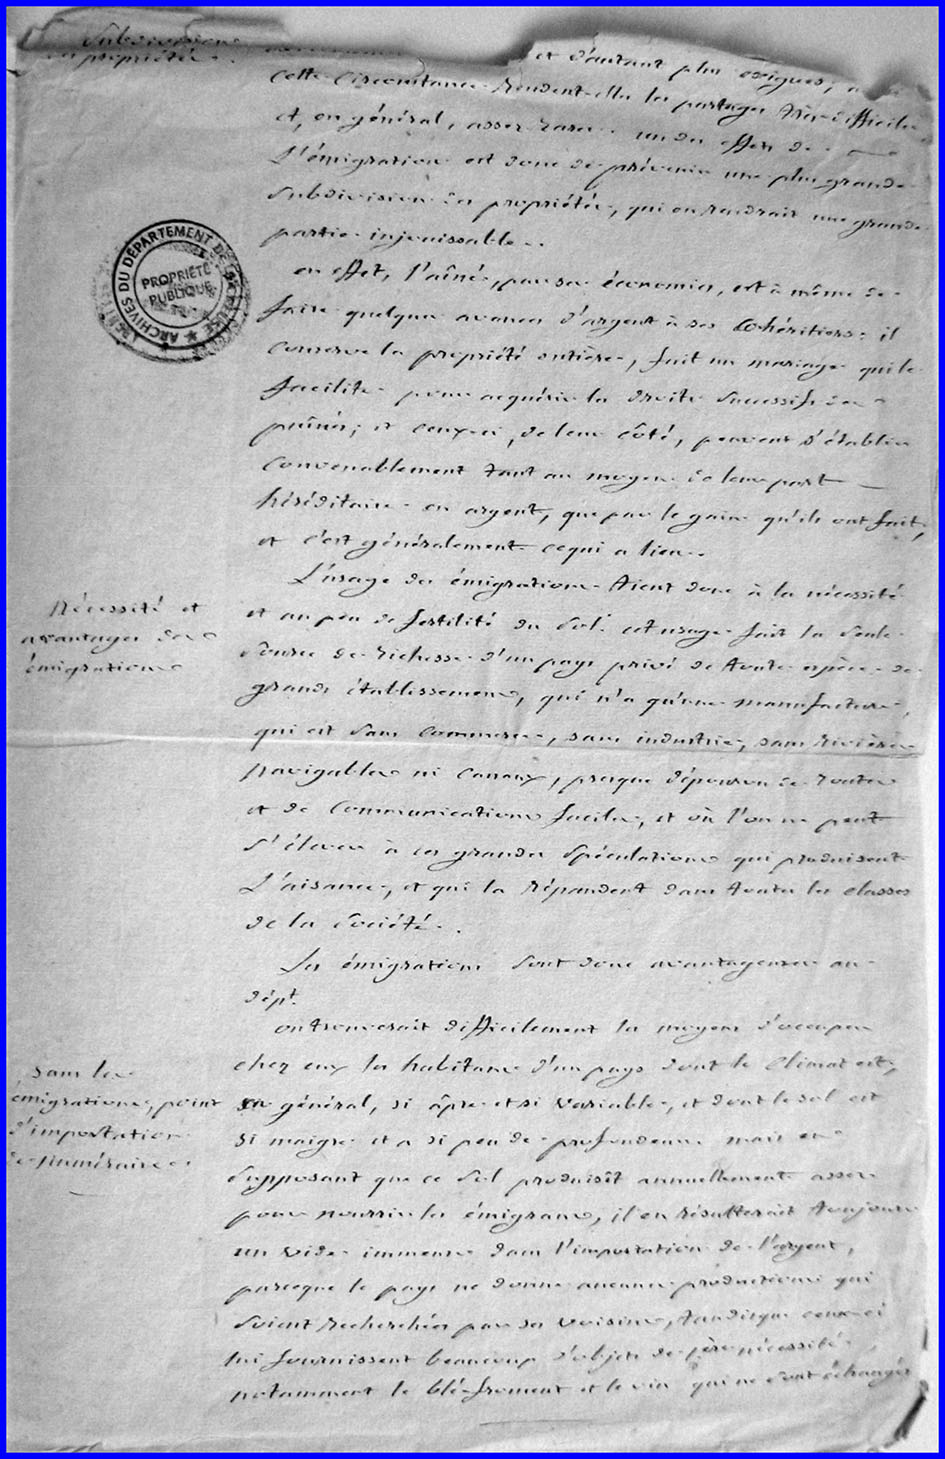 Subdivision
des propriétés.
et d'autant plus exigues;
cette circonstance rendent-elles les partages très-difficiles
et, en général, assez rares. un des effets de
L'émigration est donc de prévenir une plus grande
subdivision des propriétés, qui en rendrait une grande
partie injouissable.
ARCHIVES DU DÉPARTEMENT DE LA CREUSE
PROPRIÉTÉ
PUBLIQUE
en effet, l'aîné, par ses économies, est à même de
faire quelques avances d'argent à ses cohéritiers: il
conserve la propriété entière, fait un mariage qui le
facilite pour acquérir les droits successifs des
puînés; et ceux-ci, de leur côté, peuvent s'établir
convenablement tant au moyen de leur part
héréditaire en argent, que par le gain qu'ils ont fait,
et c'est généralement ce qui a lieu.
Nécessité et
avantages des
émigrations
L'usage des émigrations tient donc à la nécessité
et au peu de fertilité du sol. cet usage fait la seule
source de richesse d'un pays privé de toute espèce de
grands établissemens, qui n'a qu'une manufacture,
qui est sans commerce, sans industrie, sans rivières
navigables ni canaux, presque dépourvu de routes
et de communications faciles, et où l'on ne peut
s'élever à ces grandes spéculations qui produisent
L'aisance, et qui la répandent dans toutes les classes
de la société.
Les émigrations sont donc avantageuses au
dépt.
Sans les
émigrations, point
d'importation
de numéraire.
on trouverait difficilement les moyens d'occuper
chez eux les habitans d'un pays dont le climat est,
en général, si âpre et si variable, et dont le sol est
si maigre et a si peu de profondeur. mais en
supposant que ce sol produisît annuellement assez
pour nourrir les émigrans, il en résulterait toujours
un vide immense dans l'importation de l'argent,
parceque le pays ne donne aucunes productions qui
soient recherchées par ses voisins, tandisque ceux-ci
lui fournissent beaucoup d'objets de 1ère nécessité
notamment le blé-froment et le vin qui ne sont échangés